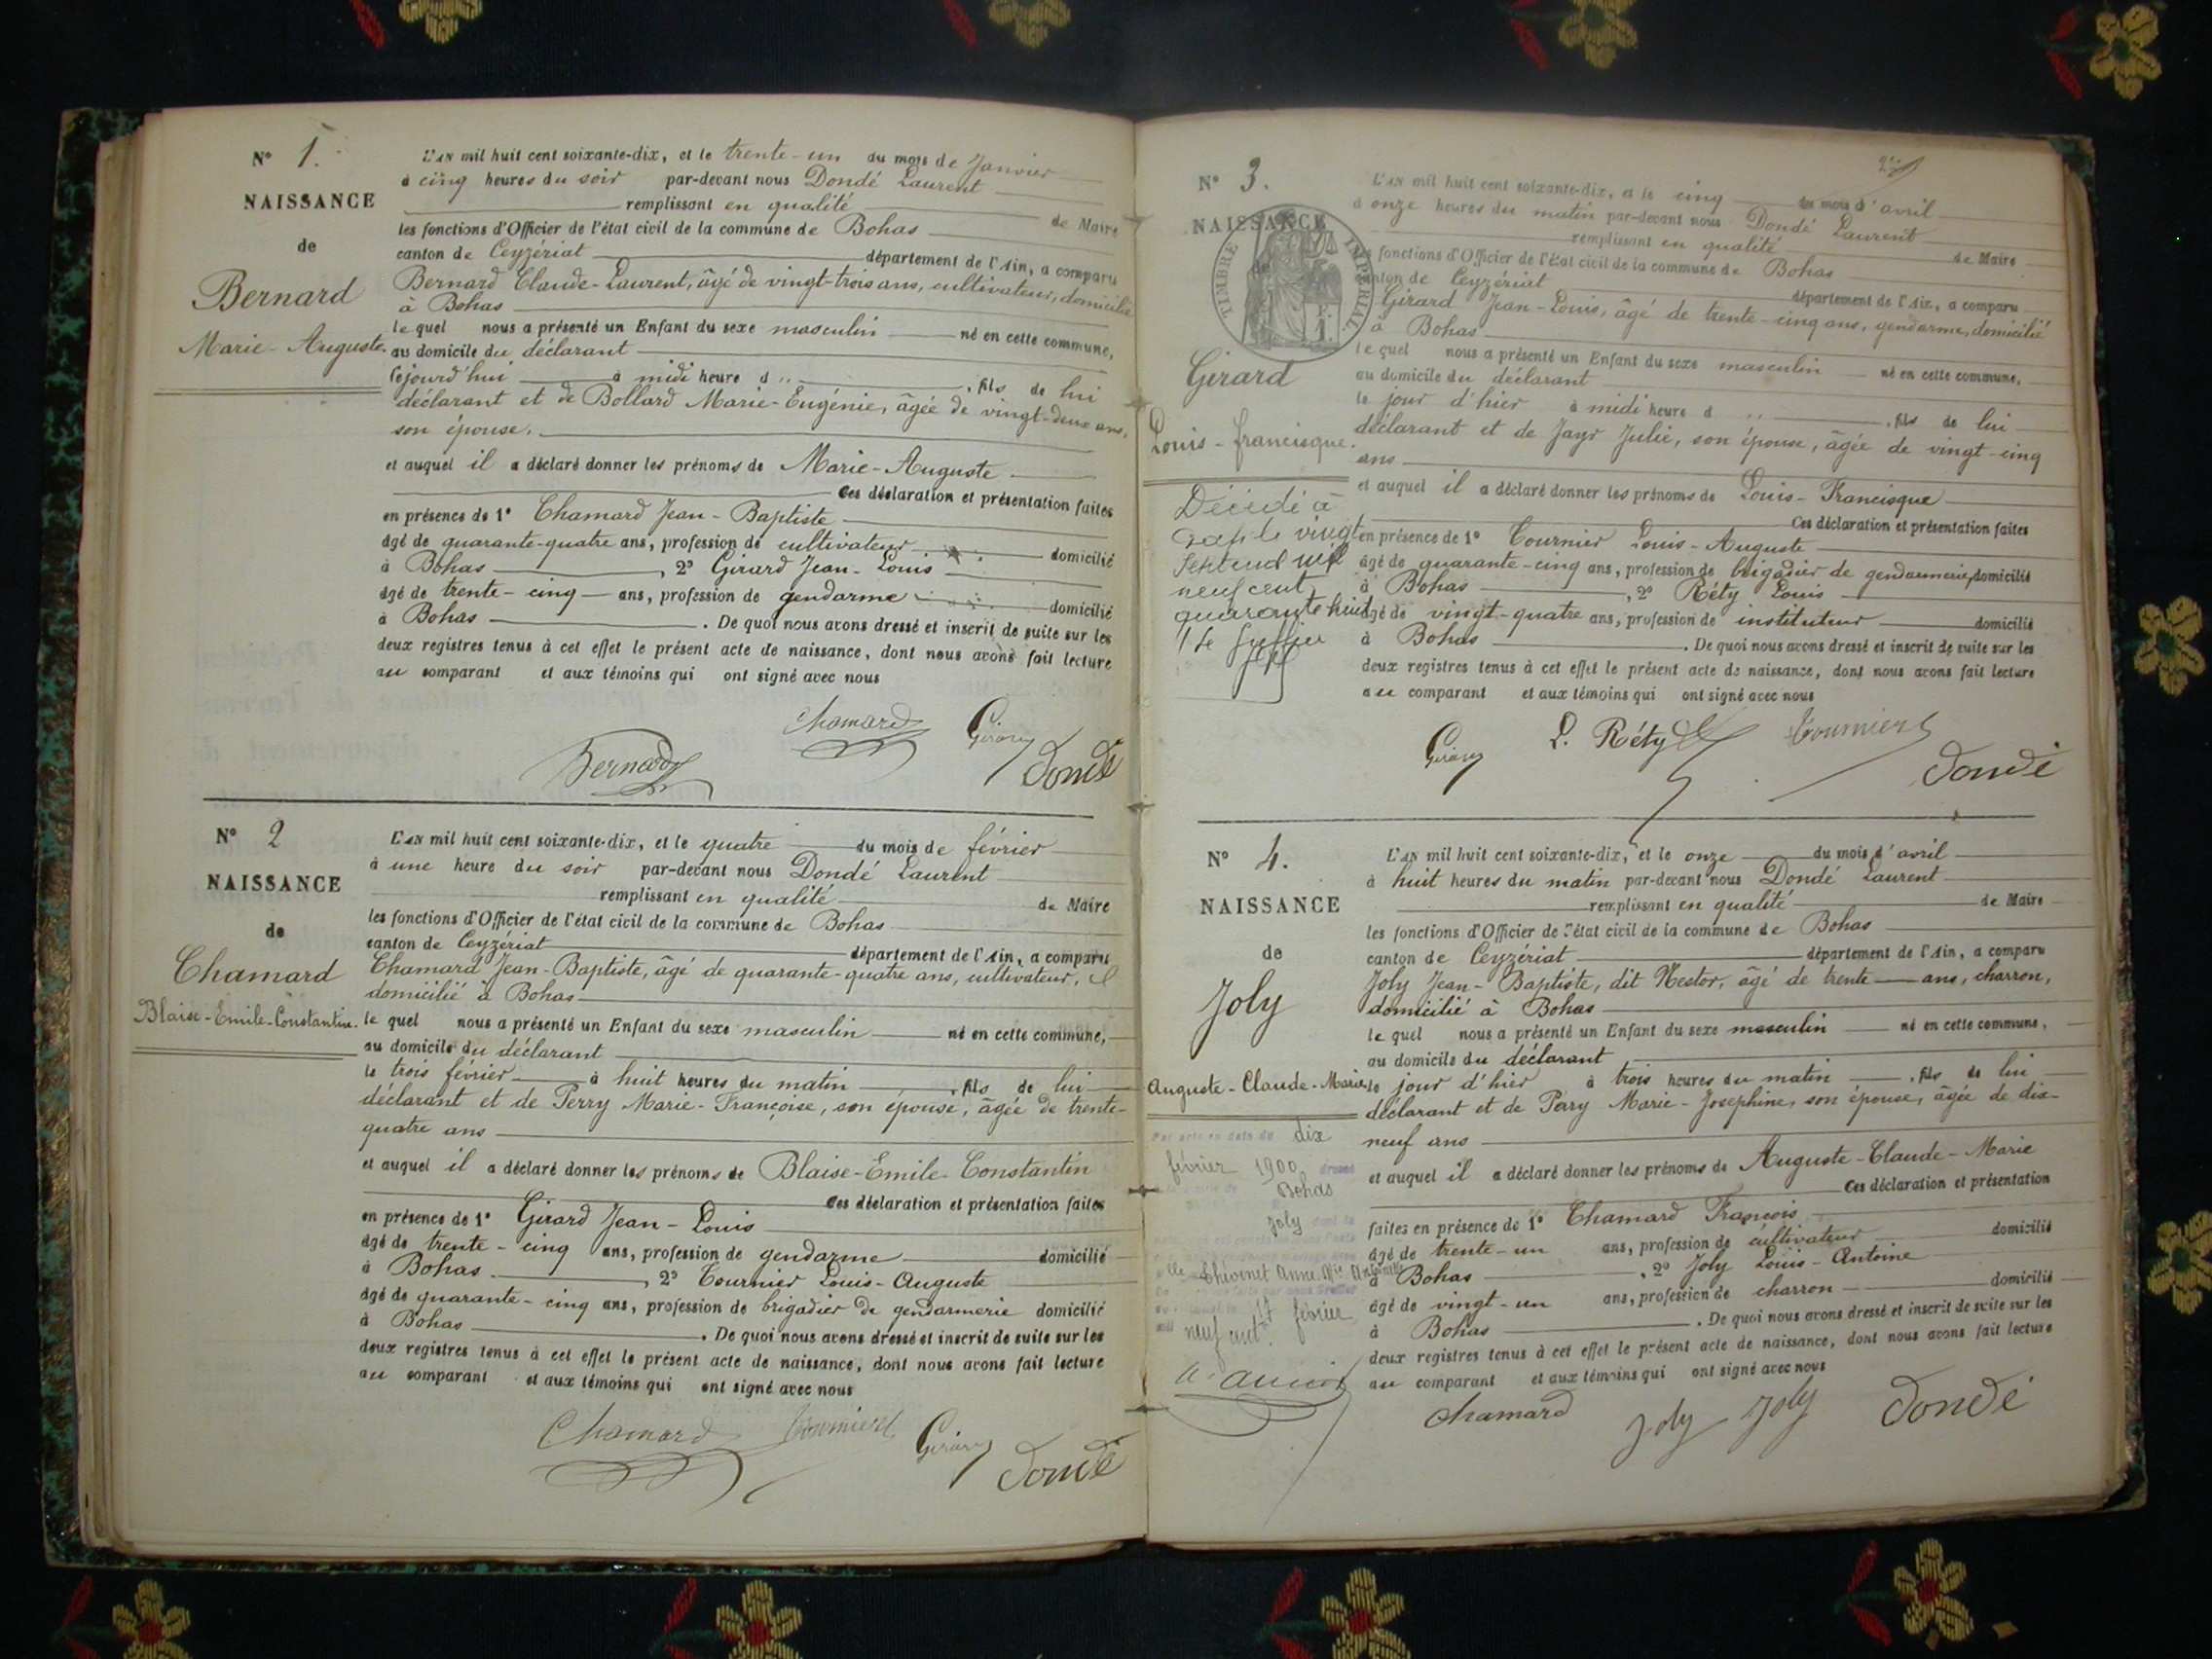 N° 1.
NAISSANCE
de
Bernard
Marie-Auguste.
L'AN mil huit cent soixante-dix, et le trente-un du mois de Janvier
à cinq heures du soir par-devant nous Dondé Laurent
remplissant en qualité de Maire
les fonctions d'Officier de l'état civil de la commune de Bohas
canton de Ceyzériat département de l'Ain, a comparu
Bernard Claude-Laurent, âgé de vingt-trois ans, cultivateur, domicilié
à Bohas
lequel nous a présenté un Enfant du sexe masculin né en cette commune,
au domicile du déclarant
cejourd'hui à midi heure d " , fils de lui
déclarant et de Bollard Marie-Eugénie, âgée de vingt-deux ans,
son épouse.
et auquel il a déclaré donner les prénoms de Marie-Auguste
Ces déclaration et présentation faites
en présence de 1° Chamard Jean-Baptiste
âgé de quarante-quatre ans, profession de cultivateur domicilié
à Bohas , 2° Girard Jean-Louis
âgé de trente-cinq ans, profession de gendarme domicilié
à Bohas . De quoi nous avons dressé et inscrit de suite sur les
deux registres tenus à cet effet le présent acte de naissance, dont nous avons fait lecture
au comparant et aux témoins qui ont signé avec nous
Chamard Girard
Bernard Dondé
N° 2
NAISSANCE
de
Chamard
Blaise-Emile-Constantin.
L'AN mil huit cent soixante-dix, et le quatre du mois de février
à une heure du soir par-devant nous Dondé Laurent
remplissant en qualité de Maire
les fonctions d'Officier de l'état civil de la commune de Bohas
canton de Ceyzériat département de l'Ain, a comparu
Chamard Jean-Baptiste, âgé de quarante-quatre ans, cultivateur,
domicilié à Bohas
lequel nous a présenté un Enfant du sexe masculin né en cette commune,
au domicile du déclarant
le trois février à huit heures du matin , fils de lui
déclarant et de Perry Marie-Françoise, son épouse, âgée de trente-
quatre ans
et auquel il a déclaré donner les prénoms de Blaise-Emile-Constantin
Ces déclaration et présentation faites
en présence de 1° Girard Jean-Louis
âgé de trente-cinq ans, profession de gendarme domicilié
à Bohas , 2° Tournier Louis-Auguste
âgé de quarante-cinq ans, profession de brigadier de gendarmerie domicilié
à Bohas . De quoi nous avons dressé et inscrit de suite sur les
deux registres tenus à cet effet le présent acte de naissance, dont nous avons fait lecture
au comparant et aux témoins qui ont signé avec nous
Chamard Tournier Girard Dondé
N° 3.
NAISSANCE
de
TIMBRE IMPERIAL.
Girard
Louis-francisque.
Décédé à
le vingt
neuf cent
quarante huit
L'AN mil huit cent soixante-dix, et le cinq du mois d'avril
à onze heures du matin par-devant nous Dondé Laurent
remplissant en qualité de Maire
les fonctions d'Officier de l'état civil de la commune de Bohas
canton de Ceyzériat département de l'Ain, a comparu
Girard Jean-Louis, âgé de trente-cinq ans, gendarme, domicilié
à Bohas
lequel nous a présenté un Enfant du sexe masculin né en cette commune,
au domicile du déclarant
le jour d'hier à midi heure d " , fils de lui
déclarant et de Jayr Julie, son épouse, âgée de vingt-cinq
ans
et auquel il a déclaré donner les prénoms de Louis-Francisque
Ces déclaration et présentation faites
en présence de 1° Tournier Louis-Auguste
âgé de quarante-cinq ans, profession de brigadier de gendarmerie, domicilié
à Bohas , 2° Réty Louis
âgé de vingt-quatre ans, profession de instituteur domicilié
à Bohas . De quoi nous avons dressé et inscrit de suite sur les
deux registres tenus à cet effet le présent acte de naissance, dont nous avons fait lecture
au comparant et aux témoins qui ont signé avec nous
Girard L. Réty Tournier
Dondé
N° 4.
NAISSANCE
de
Joly
Auguste-Claude-Marie
Par acte en date du dix
février 1900 dressé
Bohas
Joly
Thévenet Anne
17 février
mil neuf cent
L'AN mil huit cent soixante-dix, et le onze du mois d'avril
à huit heures du matin par-devant nous Dondé Laurent
remplissant en qualité de Maire
les fonctions d'Officier de l'état civil de la commune de Bohas
canton de Ceyzériat département de l'Ain, a comparu
Joly Jean-Baptiste, dit Nestor, âgé de trente ans, charron,
domicilié à Bohas
lequel nous a présenté un Enfant du sexe masculin né en cette commune,
au domicile du déclarant
le jour d'hier à trois heures du matin , fils de lui
déclarant et de Perry Marie-Josephine, son épouse, âgée de dix-
neuf ans
et auquel il a déclaré donner les prénoms de Auguste-Claude-Marie
Ces déclaration et présentation
faites en présence de 1° Chamard François
âgé de trente-un ans, profession de cultivateur domicilié
à Bohas , 2° Joly Louis-Antoine
âgé de vingt-un ans, profession de charron domicilié
à Bohas . De quoi nous avons dressé et inscrit de suite sur les
deux registres tenus à cet effet le présent acte de naissance, dont nous avons fait lecture
au comparant et aux témoins qui ont signé avec nous
Chamard Joly Joly Dondé